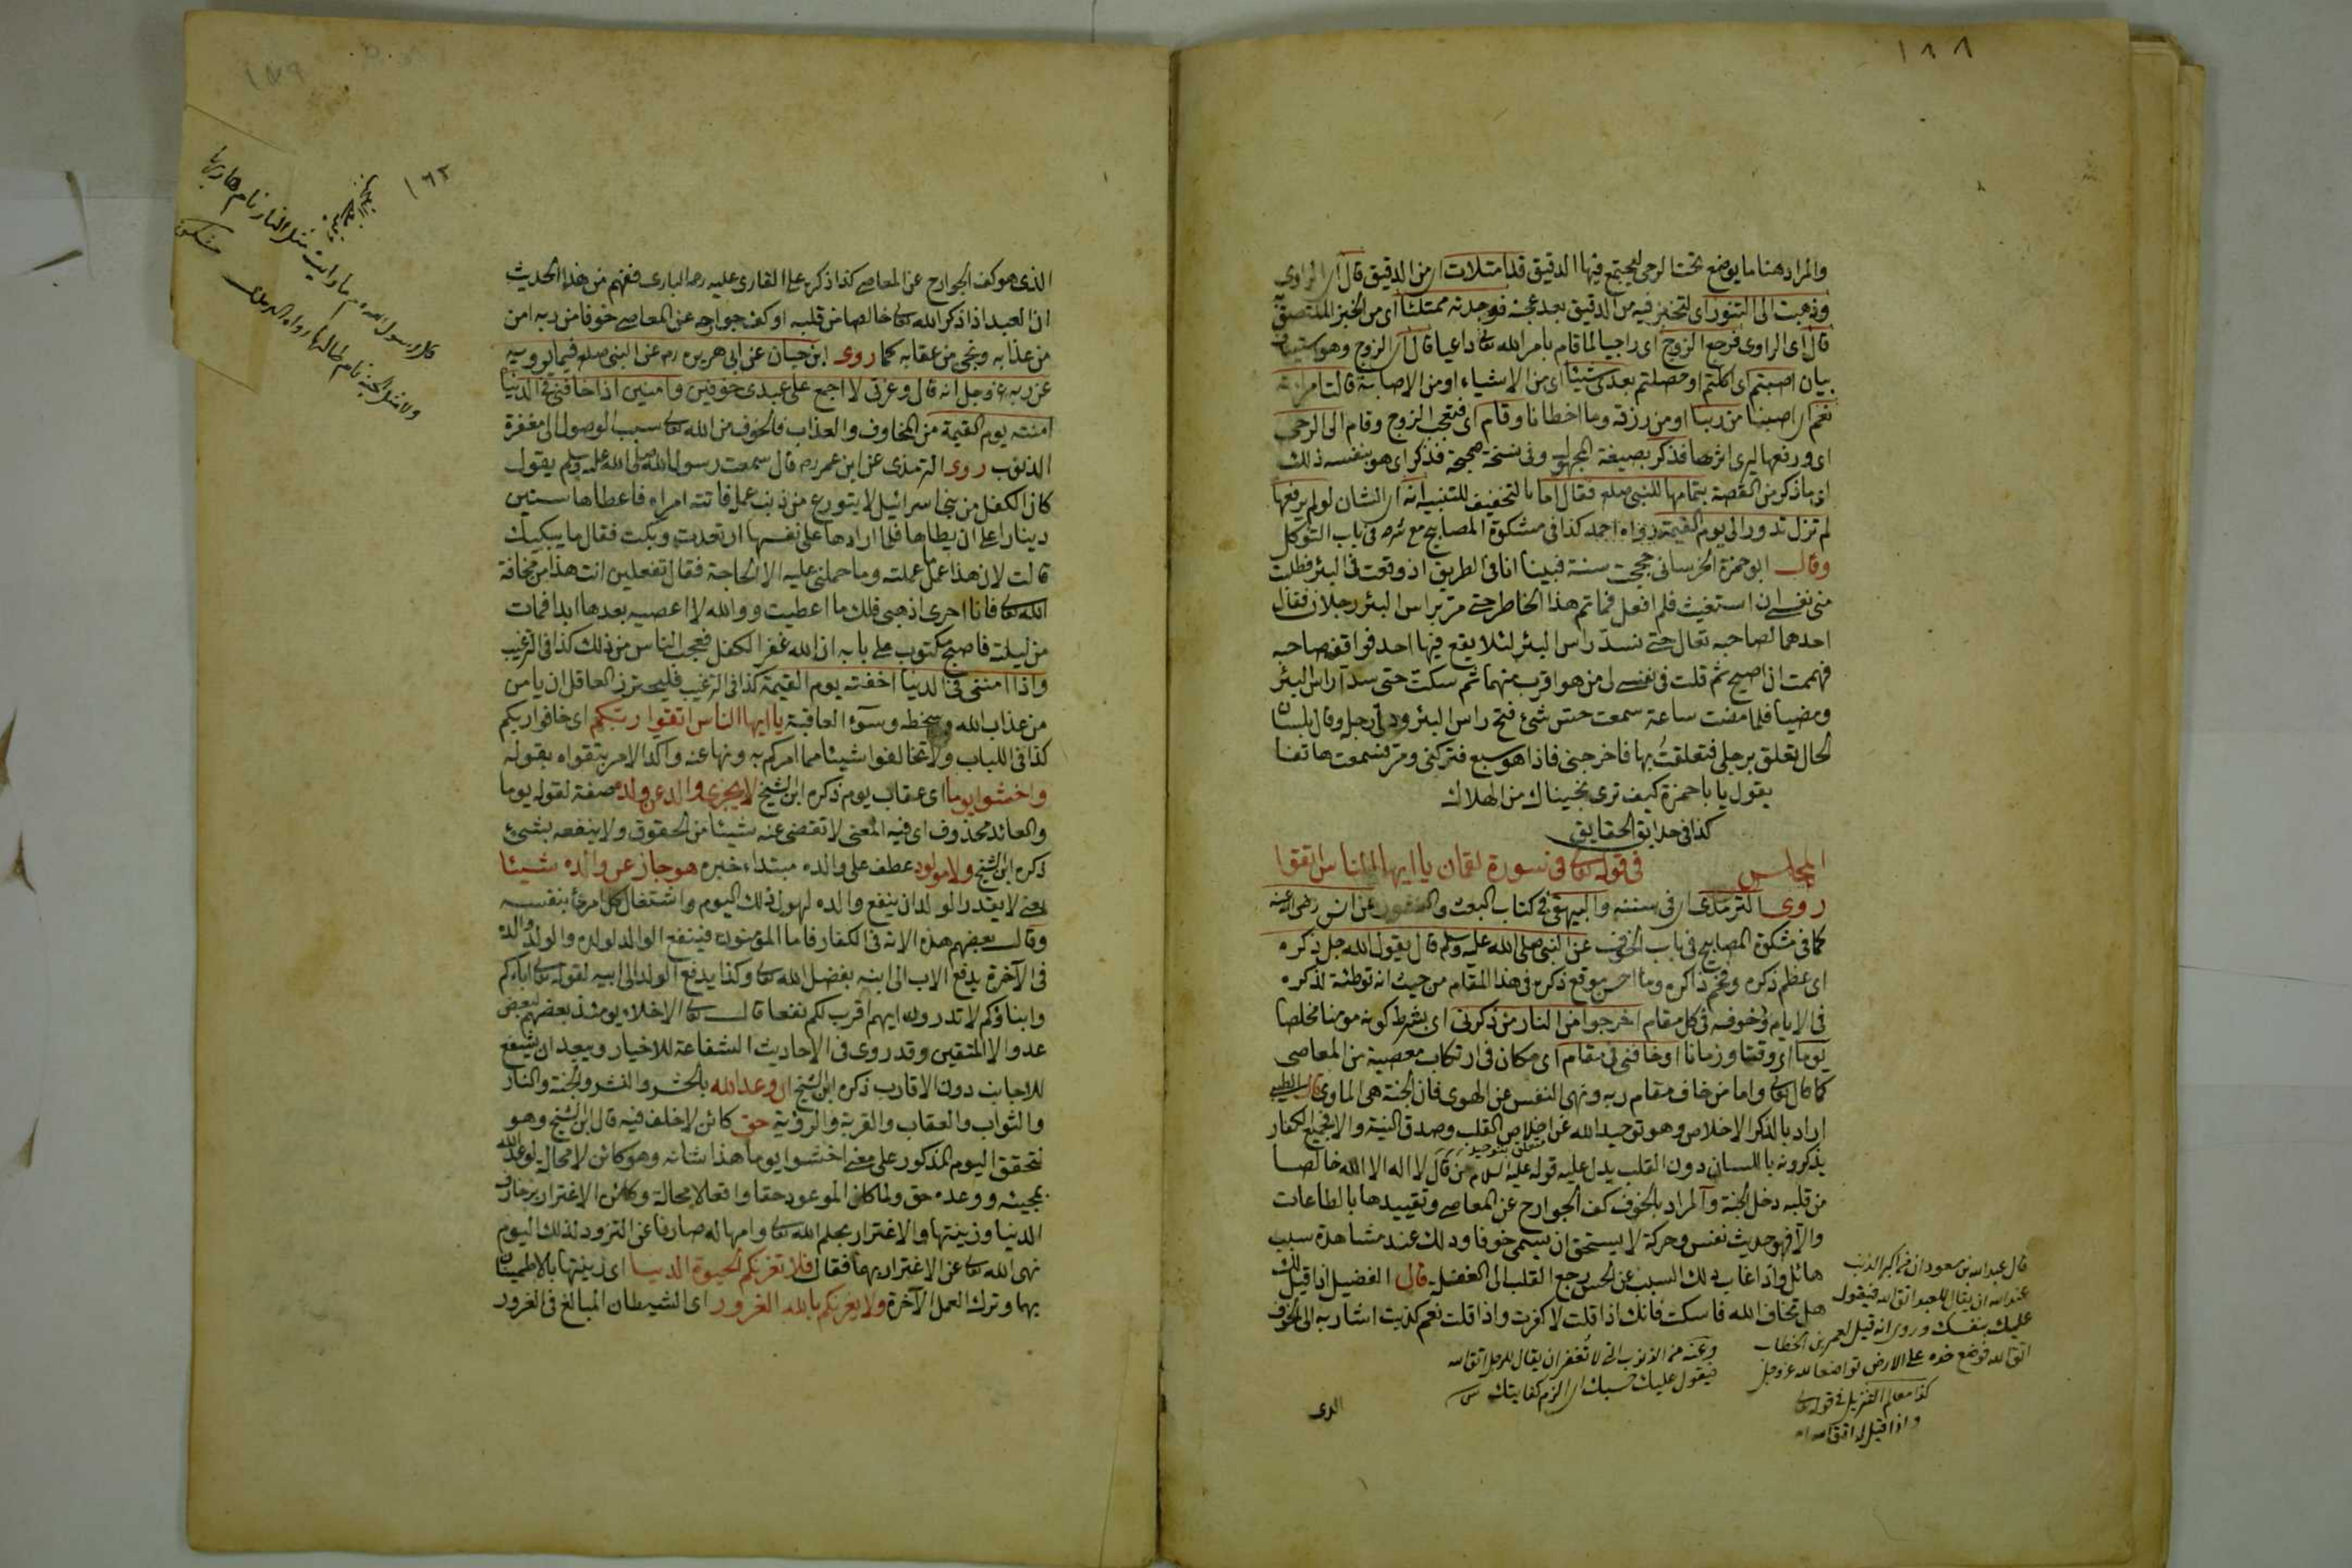 ١٨٨
والمراد هنا ما يوضع تحت الرحى ليجتمع فيها الدقيق قد امتلات اى من الدقيق قال اى الراوى
وذهبت الى التنور اى لتخبز فيه من الدقيق بعد عجنه فوجدته ممتلئا اى من الخبز الملتصق به
قال اى الراوى فرجع الزوج اى راجيا لما قام بامر الله تعالى داعيا قال اى الزوج وهو استيناف
بيان اصبتم اى اكلتم او حصلتم بعدى شيئا اى من الاشياء او من الاصابة قالت امراته
نعم اى اصبنا من ربنا او من رزقه وما اخطانا وقام اى فتعجب الزوج وقام الى الرحى
اى ورفعها ليرى اثرها فذكر بصيغة المجهول وفى نسخة صحيحة فذكر اى هو بنفسه ذلك
اى ما ذكر من القصة بتمامها للنبى صلعم فقال اما بالتخفيف للتنبيه انه اى الشان لو لم يرفعها
لم تزل تدور الى يوم القيمة رواه احمد كذا فى مشكوة المصابيح مع شرحه فى باب التوكل
وقال ابو حمزة الخرسانى حججت سنة فبينا انا فى الطريق اذ وقعت فى البئر فطلبت
منى نفسى ان استغيث فلم افعل فما تم هذا الخاطر حتى مر براس البئر رجلان فقال
احدهما لصاحبه تعال حتى نسد راس البئر لئلا يقع فيها احد فوافقه صاحبه
فهممت ان اصيح ثم قلت فى نفسى لى من هو اقرب منهما ثم سكت حتى سدا راس البئر
ومضيا فلما مضت ساعة سمعت حس شئ فتح راس البئر ودلى رجله وقال بلسان
الحال تعلق برجلى فتعلقت بها فاخرجنى فاذا هو سبع فتركنى ومر فسمعت هاتفا
يقول يا با حمزة كيف ترى نجيناك من الهلاك
كذا فى حدايق الحقايق
المجلس فى قوله تعالى فى سورة لقمان يا ايها الناس اتقوا
روى الترمذى اى فى سننه والبيهقى فى كتاب البعث والنشور عن انس رضى الله عنه
كما فى مشكوة المصابيح فى باب الخوف عن النبى صلى الله عليه وسلم قال يقول الله جل ذكره
اى عظم ذكره وفخم ذاكره وما احسن موقع ذكره فى هذا المقام من حيث انه توطئة لذكره
فى الايام وخوفه فى كل مقام اخرجوا من النار من ذكرنى اى بشرط كونه مومنا مخلصا
يوما اى وقتا وزمانا او خافنى فى مقام اى مكان فى ارتكاب معصية من المعاصى
كما قال تعالى واما من خاف مقام ربه ونهى النفس عن الهوى فان الجنة هى الماوى قال الطيبى
اراد بالذكر الاخلاص وهو توحيد الله عن اخلاص القلب وصدق النية والا فجميع الكفار
متعلق بتوحيد
يذكرونه باللسان دون القلب يدل عليه قوله عليه السلام من قال لا اله الا الله خالصا
من قلبه دخل الجنة والمراد بالخوف كف الجوارح عن المعاصى وتقييدها بالطاعات
والا فهو حديث نفس وحركة لا يستحق ان يسمى خوفا وذلك عند مشاهدة سبب
هائل واذا غاب ذلك السبب عن الحس رجع القلب الى الغفلة قال الفضيل اذا قيل لك
هل تخاف الله فاسكت فانك اذا قلت لا كفرت واذا قلت نعم كذبت اشار به الى الخوف
الذى
قال عبد الله بن مسعود ان من اكبر الذنب
عند الله ان يقال للعبد اتق الله فيقول
عليك بنفسك وروى انه قيل لعمر بن الخطاب
اتق الله فوضع خده على الارض تواضعا لله عز وجل
كذا معالم التنزيل فى قوله تعالى
واذا قيل له اتق الله
وعنه من الذنوب التى لا تغفر ان يقال للرجل اتق الله
فيقول عليك حسبك اى الزم كفايتك
١٨٩
١٦٣
قال رسول الله ما رايت مثل النار نام هاربها
ولا مثل الجنة نام طالبها رواه الترمذى مشكوة
الذى هو كف الجوارح عن المعاصى كذا ذكره على القارى عليه رحمة البارى ففهم من هذا الحديث
ان العبد اذا ذكر الله تعالى خالصا من قلبه او كف جوارحه عن المعاصى خوفا من ربه امن
من عذابه ونجى من عقابه كما روى ابن حبان عن ابى هريرة رضه عن النبى صلعم فيما يرويه
عن ربه عز وجل انه قال وعزتى لا اجمع على عبدى خوفين وامنين اذا خافنى فى الدنيا
امنته يوم القيمة من المخاوف والعذاب فالخوف من الله تعالى سبب الوصول الى مغفرة
الذنوب روى الترمذى عن ابن عمر رضه قال سمعت رسول الله صلى الله عليه وسلم يقول
كان الكفل من بنى اسرائيل لا يتورع من ذنب عمله فاتته امراة فاعطاها ستين
دينارا على ان يطاها فلما ارادها على نفسها ارتعدت وبكت فقال ما يبكيك
قالت لان هذا عمل ما عملته وما حملنى عليه الا الحاجة فقال تفعلين انت هذا من مخافة
الله تعالى فانا احرى اذهبى فلك ما اعطيت و والله لا اعصيه بعدها ابدا فمات
من ليلته فاصبح مكتوب على بابه ان الله غفر الكفل فعجب الناس من ذلك كذا فى الترغيب
واذا امننى فى الدنيا اخفته يوم القيمة كذا فى الترغيب فليحترز العاقل ان يامن
من عذاب الله وسخطه وسوء العاقبة يا ايها الناس اتقوا ربكم اى خافوا ربكم
كذا فى اللباب ولا تخالفوا شيئا مما امركم به ونهاعنه واكد الامر بتقواه بقوله
واخشوا يوما اى عقاب يوم ذكره ابن الشيخ لا يجزى والد عن ولده صفة لقوله يوما
والعائد محذوف اى فيه المعنى لا تقضى عنه شيئا من الحقوق ولا ينفعه بشئ
ذكره ابن الشيخ ولا مولود عطف على والده مبتداء خبره هو جاز عن والده شيئا
يعنى لا يقدر الولد ان ينفع والده لهول ذلك اليوم واشتغال كل امرئ بنفسه
وقال بعضهم هذه الاية فى الكفار فاما المؤمنون فينتفع الوالد لولده والولد والده
فى الآخرة يدفع الاب الى ابنه بفضل الله تعالى وكذا يدفع الولد الى ابيه لقوله تعالى آباؤكم
وابناؤكم لا تدرون ايهم اقرب لكم نفعا قال تعالى الاخلاء يومئذ بعضهم لبعض
عدو الا المتقين وقد روى فى الاحاديث الشفاعة للاخيار ويبعد ان يشفع
للاجانب دون الاقارب ذكره ابن الشيخ ان وعد الله بالحشر والنشر والجنة والنار
والثواب والعقاب والقربة والرؤية حق كائن لا خلف فيه قال ابن الشيخ وهو
لتحقق اليوم المذكور على معنى اخشوا يوما هذا شانه وهو كائن لا محالة لوعد الله
بمجيئه ووعده حق ولما كان الموعود حقا واقعا لا محالة وكان الاغترار بزخارف
الدنيا وزينتها والاغترار بحلم الله تعالى وامهاله صارفا عن التزود لذلك اليوم
نهى الله تعالى عن الاغترار بهما فقال فلا تغرنكم الحيوة الدنيا اى زينتها بالاطمينان
بها وترك العمل الآخرة ولا يغرنكم بالله الغرور اى الشيطان المبالغ فى الغرور